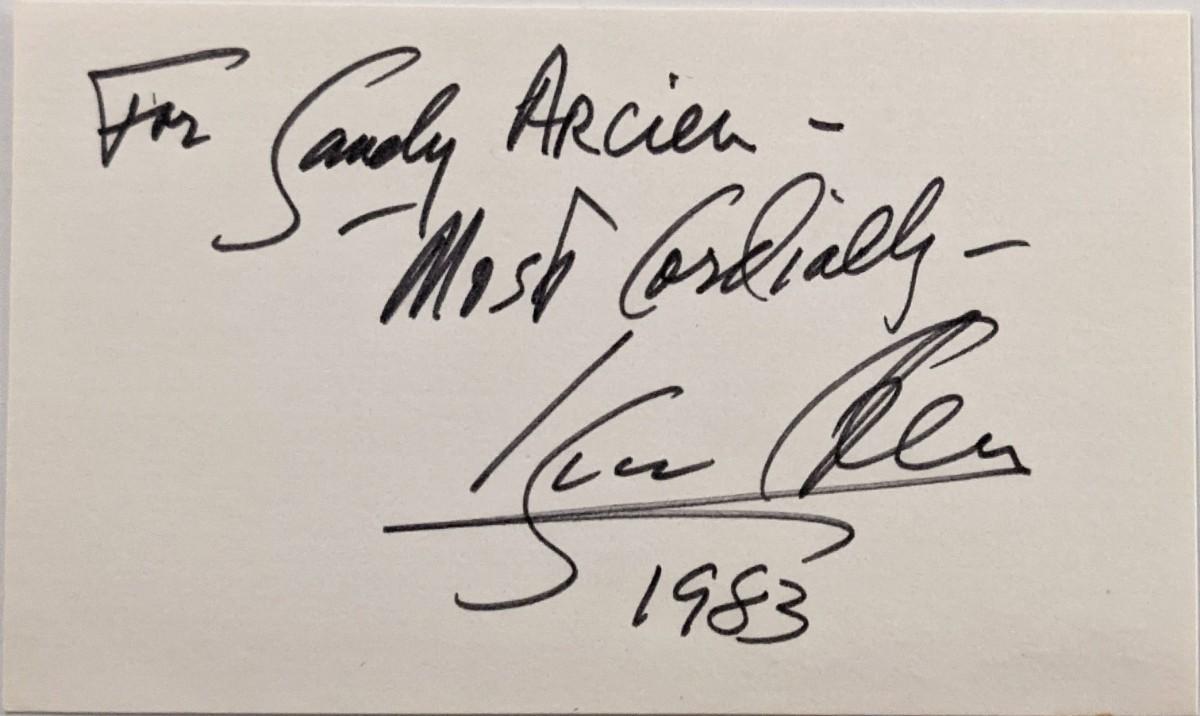 For Sandy Arcien -
- Most Cordially -
1983